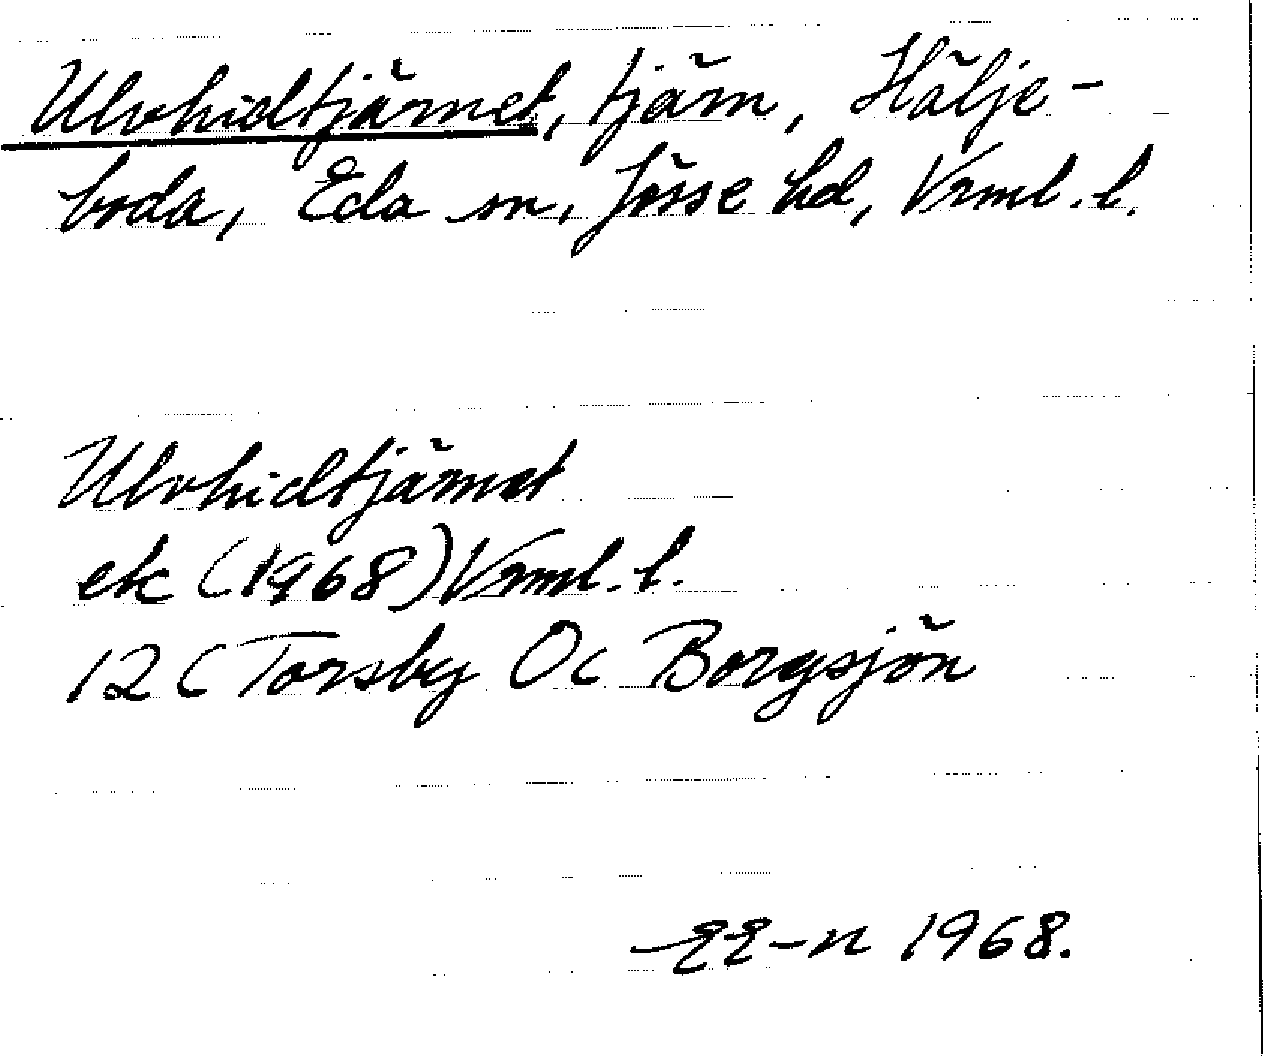 Ulvhidtjärnet, tjärn, Hälje-
boda, Eda sn, Jösse hd, Vrml. l.
Ulvhidtjärnet
ek (1968) Vrml. l.
12 C Torsby Oc Borgsjön
EE-n 1968.